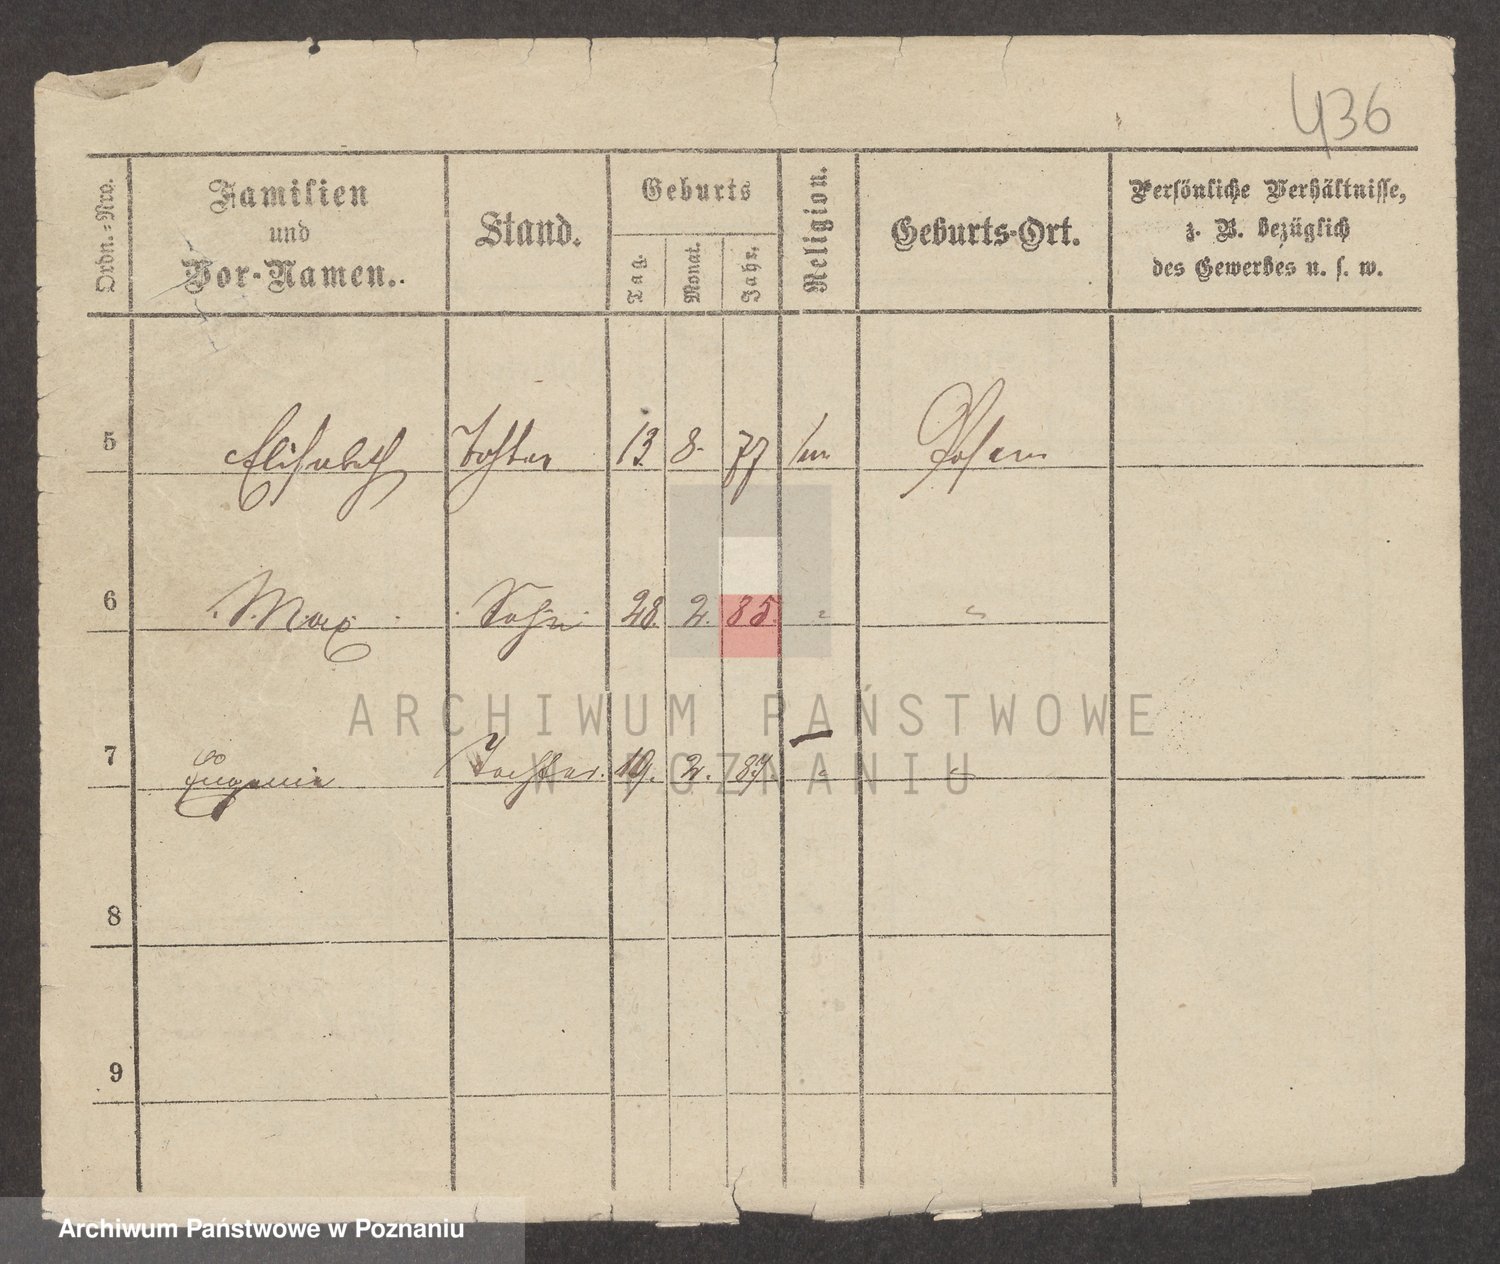 436
Ordn.-Nro.
Familien
und
Vor-Namen.
Stand.
Geburts
Tag.
Monat.
Jahr.
Religion.
Geburts-Ort.
Persönliche Verhältnisse,
z. B. bezüglich
des Gewerbes u. s. w.
5 Elisabeth Tochter 13. 8. 77 Posen
6 Max Sohn 28. 2. 85. " "
7 Eugenie Tochter. 19. 2. 87. " "
8
9
ARCHIWUM PAŃSTWOWE
W POZNANIU
Archiwum Państwowe w Poznaniu